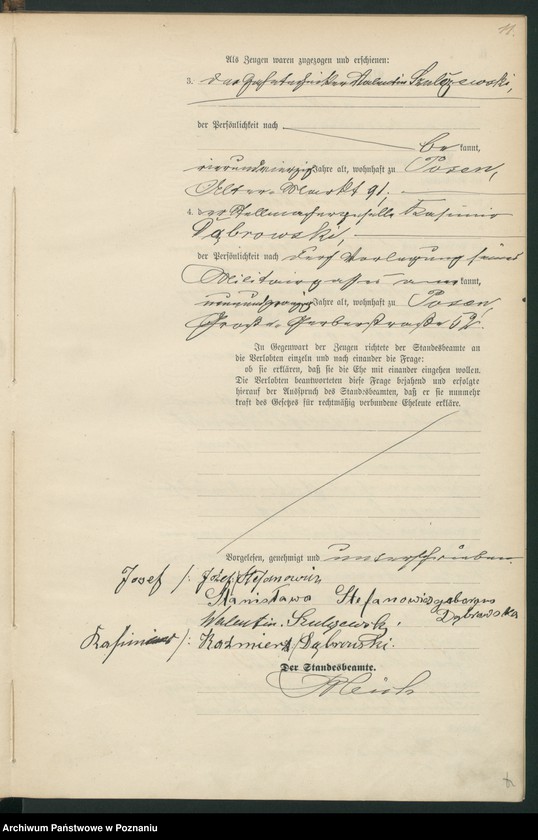 11.
Als Zeugen waren zugezogen und erschienen:
3. der Valentin Szulczewski,
der Persönlichkeit nach
be kannt,
vierundvierzig Jahre alt, wohnhaft zu Posen,
Alter Markt 91.
4. der Stellmachergeselle Kasimir
Dąbrowski,
der Persönlichkeit nach durch Vorlegung seines
Militairpasses aner kannt,
neunundzwanzig Jahre alt, wohnhaft zu Posen,
Große Gerberstraße 52.
In Gegenwart der Zeugen richtete der Standesbeamte an
die Verlobten einzeln und nach einander die Frage:
ob sie erklären, daß sie die Ehe mit einander eingehen wollen.
Die Verlobten beantworteten diese Frage bejahend und erfolgte
hierauf der Ausspruch des Standesbeamten, daß er sie nunmehr
kraft des Gesetzes für rechtmäßig verbundene Eheleute erkläre.
Vorgelesen, genehmigt und unterschrieben.
Josef /: Józef Stefanowicz
Stanisława Stefanowicz geborene
Dąbrowska
Walentin Szulczewski.
Kasimir /: Kaźmierz Dąbrowski.
Der Standesbeamte.
Archiwum Państwowe w Poznaniu